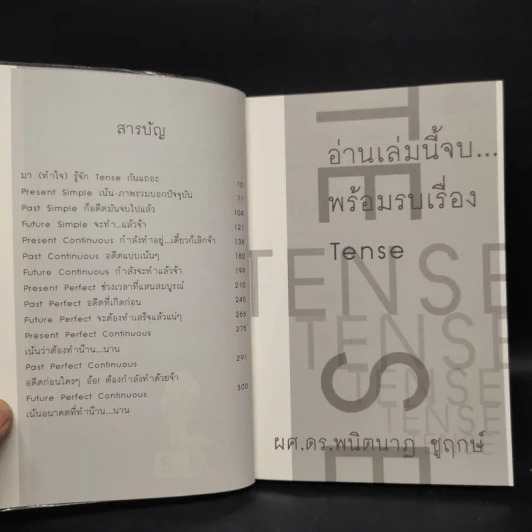 สารบัญ
มา (ทำใจ) รู้จัก Tense กันเถอะ 10
Present Simple เน้น-ภาพรวมบอกปัจจุบัน 71
Past Simple ก็อดีตมันจบไปแล้ว 104
Future Simple จะทำ...แล้วจ้า 121
Present Continuous กำลังทำอยู่...เดี๋ยวก็เลิกจ้า 136
Past Continuous อดีตแบบเน้นๆ 180
Future Continuous กำลังจะทำแล้วจ้า 199
Present Perfect ช่วงเวลาที่แสนสมบูรณ์ 210
Past Perfect อดีตที่เกิดก่อน 245
Future Perfect จะต้องทำเสร็จแล้วแน่ๆ 266
Present Perfect Continuous 275
เน้นว่าต้องทำน๊าน...นาน
Past Perfect Continuous 291
อดีตก่อนใครๆ อ้อ! ต้องกำลังทำด้วยจ้า
Future Perfect Continuous 300
เน้นอนาคตที่ทำน๊าน...นาน
อ่านเล่มนี้จบ...
พร้อมรบเรื่อง
Tense
TENSE
TENSE
TENSE
TENSE
TENSE
ผศ.ดร.พนิตนาฏ ชูฤกษ์